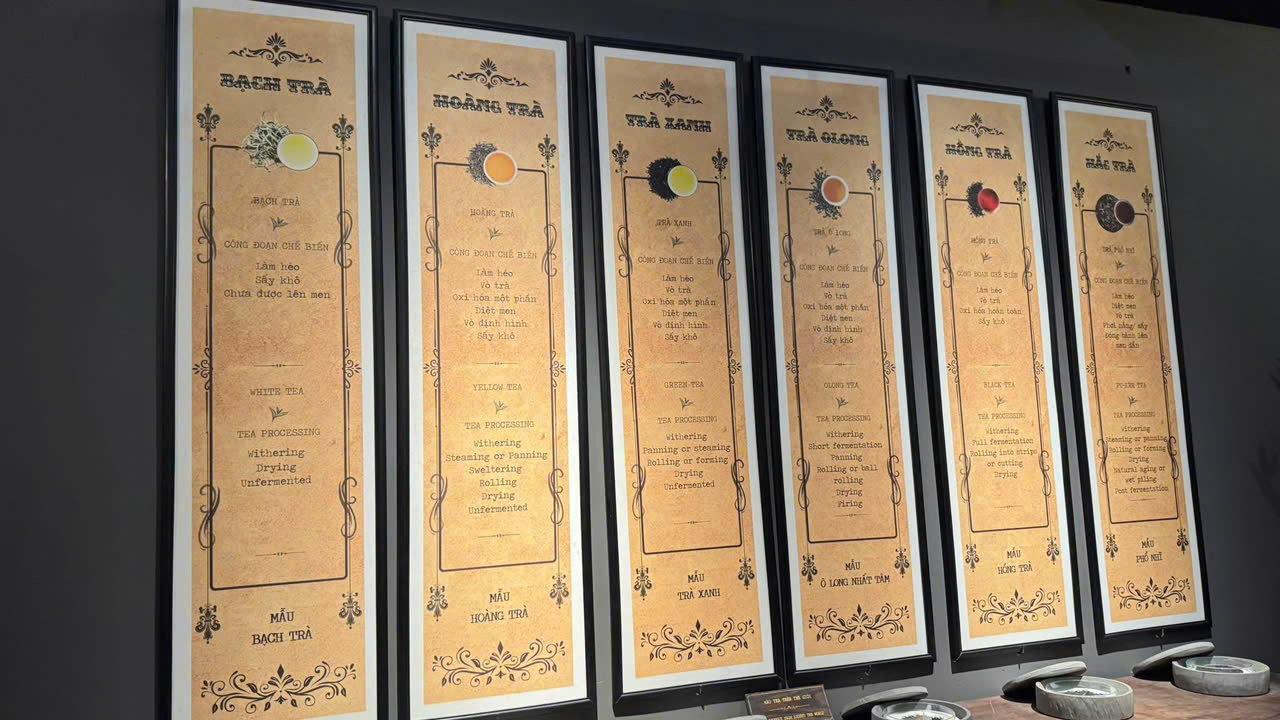 BẠCH TRÀ
BẠCH TRÀ
CÔNG ĐOẠN CHẾ BIẾN
Làm héo
Sấy khô
Chưa được lên men
WHITE TEA
TEA PROCESSING
Withering
Drying
Unfermented
MẪU
BẠCH TRÀ
HOÀNG TRÀ
HOÀNG TRÀ
CÔNG ĐOẠN CHẾ BIẾN
Làm héo
Vò trà
Oxi hóa một phần
Diệt men
Vò định hình
Sấy khô
YELLOW TEA
TEA PROCESSING
Withering
Steaming or Panning
Sweltering
Rolling
Drying
Unfermented
MẪU
HOÀNG TRÀ
TRÀ XANH
TRÀ XANH
CÔNG ĐOẠN CHẾ BIẾN
Làm héo
Vò trà
Oxi hóa một phần
Diệt men
Vò định hình
Sấy khô
GREEN TEA
TEA PROCESSING
Withering
Panning or steaming
Rolling or forming
Drying
Unfermented
MẪU
TRÀ XANH
TRÀ OLONG
TRÀ Ô LONG
CÔNG ĐOẠN CHẾ BIẾN
Làm héo
Vò trà
Oxi hóa một phần
Diệt men
Vò định hình
Sấy khô
OLONG TEA
TEA PROCESSING
Withering
Short fermentation
Panning
Rolling or ball
rolling
Drying
Firing
MẪU
Ô LONG NHẤT TÂM
HỒNG TRÀ
HỒNG TRÀ
CÔNG ĐOẠN CHẾ BIẾN
Làm héo
Vò trà
Oxi hóa hoàn toàn
Sấy khô
BLACK TEA
TEA PROCESSING
Withering
Full fermentation
Rolling into strips
or cutting
Drying
MẪU
HỒNG TRÀ
HẮC TRÀ
TRÀ PHỔ NHĨ
CÔNG ĐOẠN CHẾ BIẾN
Làm héo
Diệt men
Vò trà
Phơi nắng/ sấy
Đóng bánh lên
men dần
PU-ERH TEA
TEA PROCESSING
Withering
Steaming or panning
Rolling or forming
Drying
Natural aging or
wet piling
Post fermentation
MẪU
PHỔ NHĨ
MẪU TRÀ TRÊN THẾ GIỚI